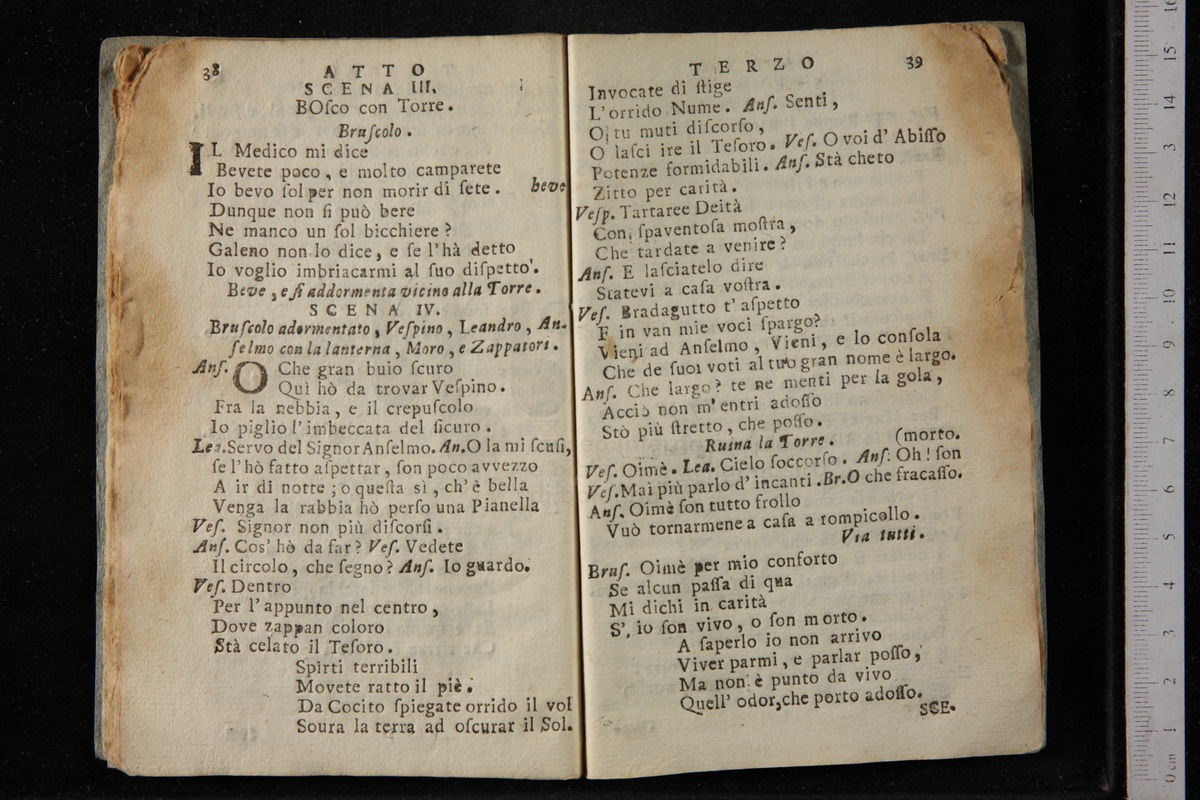 38
ATTO
SCENA III.
BOſco con Torre.
Bruſcolo.
IL Medico mi dice
Bevete poco, e molto camparete
Io bevo ſol per non morir di ſete. beve
Dunque non ſi può bere
Ne manco un ſol bicchiere?
Galeno non lo dice, e ſe l'hà detto
Io voglio imbriacarmi al ſuo diſpetto.
Beve, e ſi addormenta vicino alla Torre.
SCENA IV.
Bruſcolo adormentato, Veſpino, Leandro, An-
ſelmo con la lanterna, Moro, e Zappatori.
Anſ. O Che gran buio ſcuro
Quì hò da trovar Veſpino.
Fra la nebbia, e il crepuſcolo
Io piglio l'imbeccata del ſicuro.
Lea. Servo del Signor Anſelmo. An. O la mi ſcuſi,
ſe l'hò fatto aſpettar, ſon poco avvezzo
A ir di notte; o queſta sì, ch'è bella
Venga la rabbia hò perſo una Pianella
Veſ. Signor non più diſcorſi.
Anſ. Cos' hò da far? Veſ. Vedete
Il circolo, che ſegno? Anſ. Io guardo.
Veſ. Dentro
Per l'appunto nel centro,
Dove zappan coloro
Stà celato il Teſoro.
Spirti terribili
Movete ratto il piè.
Da Cocito ſpiegate orrido il vol
Soura la terra ad oſcurar il Sol.
TERZO
39
Invocate di ſtige
L'orrido Nume. Anſ. Senti,
O, tu muti diſcorſo,
O laſci ire il Teſoro. Veſ. O voi d' Abiſſo
Potenze formidabili. Anſ. Stà cheto
Zitto per carità.
Veſp. Tartaree Deità
Con ſpaventoſa moſtra,
Che tardate a venire?
Anſ. E laſciatelo dire
Statevi a caſa voſtra.
Veſ. Bradagutto t' aſpetto
E in van mie voci ſpargo?
Vieni ad Anſelmo, Vieni, e lo conſola
Che de ſuoi voti al tuo gran nome è largo.
Anſ. Che largo? te ne menti per la gola,
Acciò non m' entri adoſſo
Stò più ſtretto, che poſſo.
Ruina la Torre. (morto.
Veſ. Oimè. Lea. Cielo ſoccorſo. Anſ. Oh! ſon
Veſ. Mai più parlo d' incanti. Br. O che fracaſſo.
Anſ. Oimè ſon tutto frollo
Vuò tornarmene a caſa a rompicollo.
Via tutti.
Bruſ. Oimè per mio conforto
Se alcun paſſa di qua
Mi dichi in carità
S', io ſon vivo, o ſon morto.
A ſaperlo io non arrivo
Viver parmi, e parlar poſſo,
Ma non è punto da vivo
Quell' odor, che porto adoſſo.
SCE.